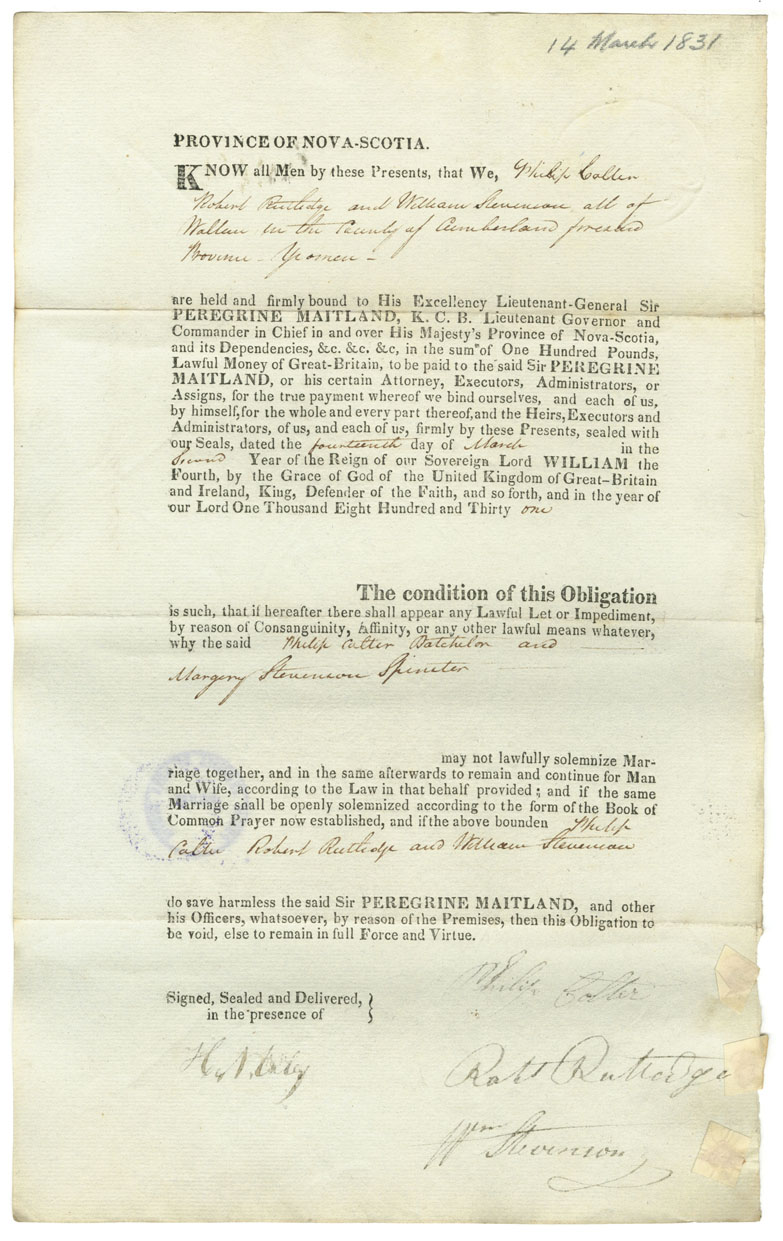 14 March 1831
PROVINCE OF NOVA-SCOTIA.
KNOW all Men by these Presents, that We, Philip Colter
Robert Rutledge and William Stevenson all of
Wallace in the County of Cumberland foresaid
Province - Yomen -
are held and firmly bound to His Excellency Lieutenant-General Sir
PEREGRINE MAITLAND, K. C. B. Lieutenant Governor and
Commander in Chief in and over His Majesty's Province of Nova-Scotia,
and its Dependencies, &c. &c. &c, in the sum of One Hundred Pounds,
Lawful Money of Great-Britain, to be paid to the said Sir PEREGRINE
MAITLAND, or his certain Attorney, Executors, Administrators, or
Assigns, for the true payment whereof we bind ourselves, and each of us,
by himself, for the whole and every part thereof, and the Heirs, Executors and
Administrators, of us, and each of us, firmly by these Presents, sealed with
our Seals, dated the fourteenth day of March in the
Second Year of the Reign of our Sovereign Lord WILLIAM the
Fourth, by the Grace of God of the United Kingdom of Great-Britain
and Ireland, King, Defender of the Faith, and so forth, and in the year of
our Lord One Thousand Eight Hundred and Thirty one
The condition of this Obligation
is such, that if hereafter there shall appear any Lawful Let or Impediment,
by reason of Consanguinity, Affinity, or any other lawful means whatever,
why the said Philip Colter Batchelor and
Margery Stevenson Spinster
may not lawfully solemnize Mar-
riage together, and in the same afterwards to remain and continue for Man
and Wife, according to the Law in that behalf provided; and if the same
Marriage shall be openly solemnized according to the form of the Book of
Common Prayer now established, and if the above bounden Philip
Colter Robert Rutledge and William Stevenson
do save harmless the said Sir PEREGRINE MAITLAND, and other
his Officers, whatsoever, by reason of the Premises, then this Obligation to
be void, else to remain in full Force and Virtue.
Philip Colter
Signed, Sealed and Delivered,
in the presence of
Robt Rutledge
Wm Stevenson